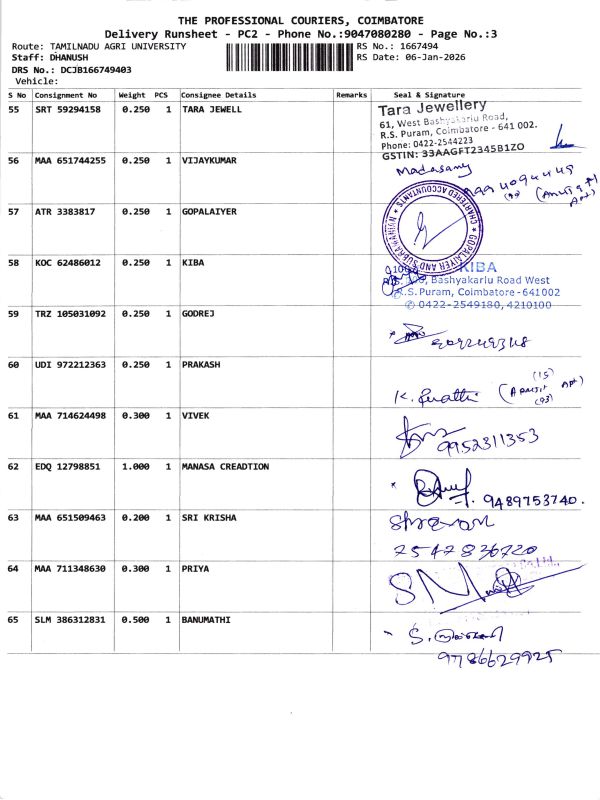 THE PROFESSIONAL COURIERS, COIMBATORE
Delivery Runsheet - PC2 - Phone No.:9047080280 - Page No.:3
Route: TAMILNADU AGRI UNIVERSITY
RS No.: 1667494
Staff: DHANUSH
RS Date: 06-Jan-2026
DRS No.: DCJB166749403
Vehicle:
S No Consignment No Weight PCS Consignee Details Remarks Seal & Signature
55 SRT 59294158 0.250 1 TARA JEWELL
Tara Jewellery
61, West Bashyakarlu Road,
R.S. Puram, Coimbatore - 641 002.
Phone: 0422-2544223
GSTIN: 33AAGFT2345B1ZO
56 MAA 651744255 0.250 1 VIJAYKUMAR
Madasamy
57 ATR 3383817 0.250 1 GOPALAIYER
GOPALAIYER AND SUBRAMANIAN
CHARTERED ACCOUNTANTS
58 KOC 62486012 0.250 1 KIBA
KIBA
Bashyakarlu Road West
R.S. Puram, Coimbatore - 641002
0422-2549180, 4210100
59 TRZ 105031092 0.250 1 GODREJ
60 UDI 972212363 0.250 1 PRAKASH
(15)
(93)
61 MAA 714624498 0.300 1 VIVEK
9952311353
62 EDQ 12798851 1.000 1 MANASA CREADTION
9489753740.
63 MAA 651509463 0.200 1 SRI KRISHA
Shravan
7547836720
64 MAA 711348630 0.300 1 PRIYA
65 SLM 386312831 0.500 1 BANUMATHI
9786629925